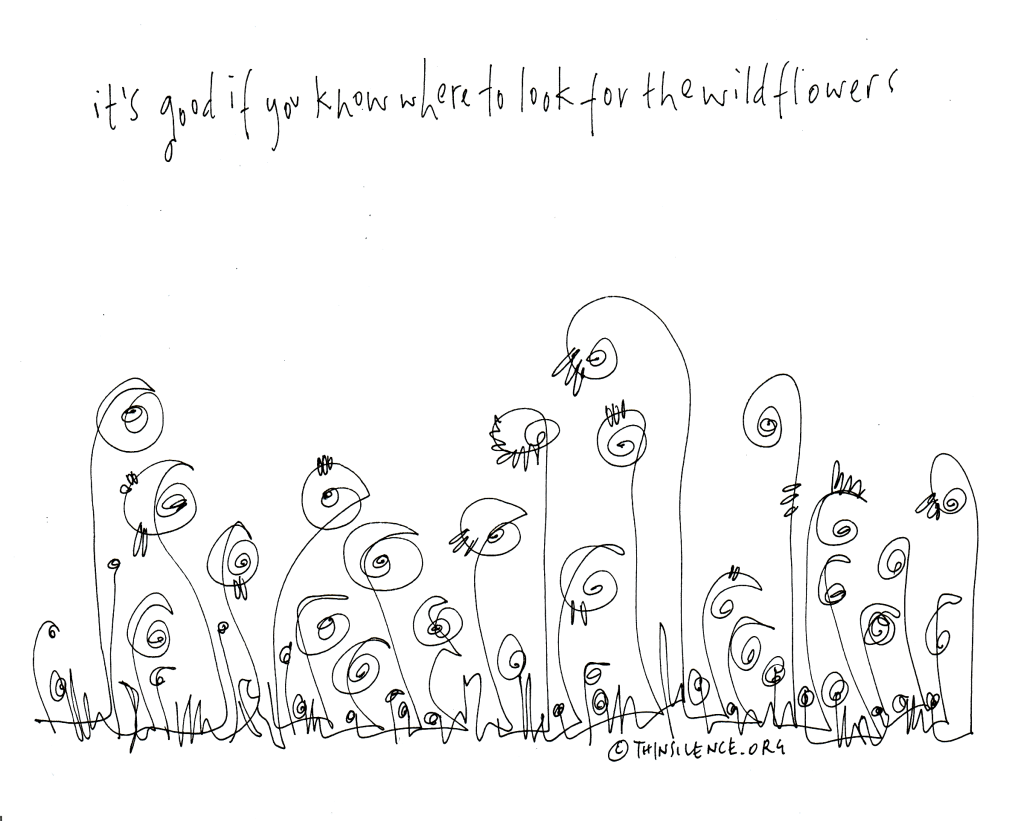 it's good if you know where to look for the wildflowers
© THINSILENCE.ORG